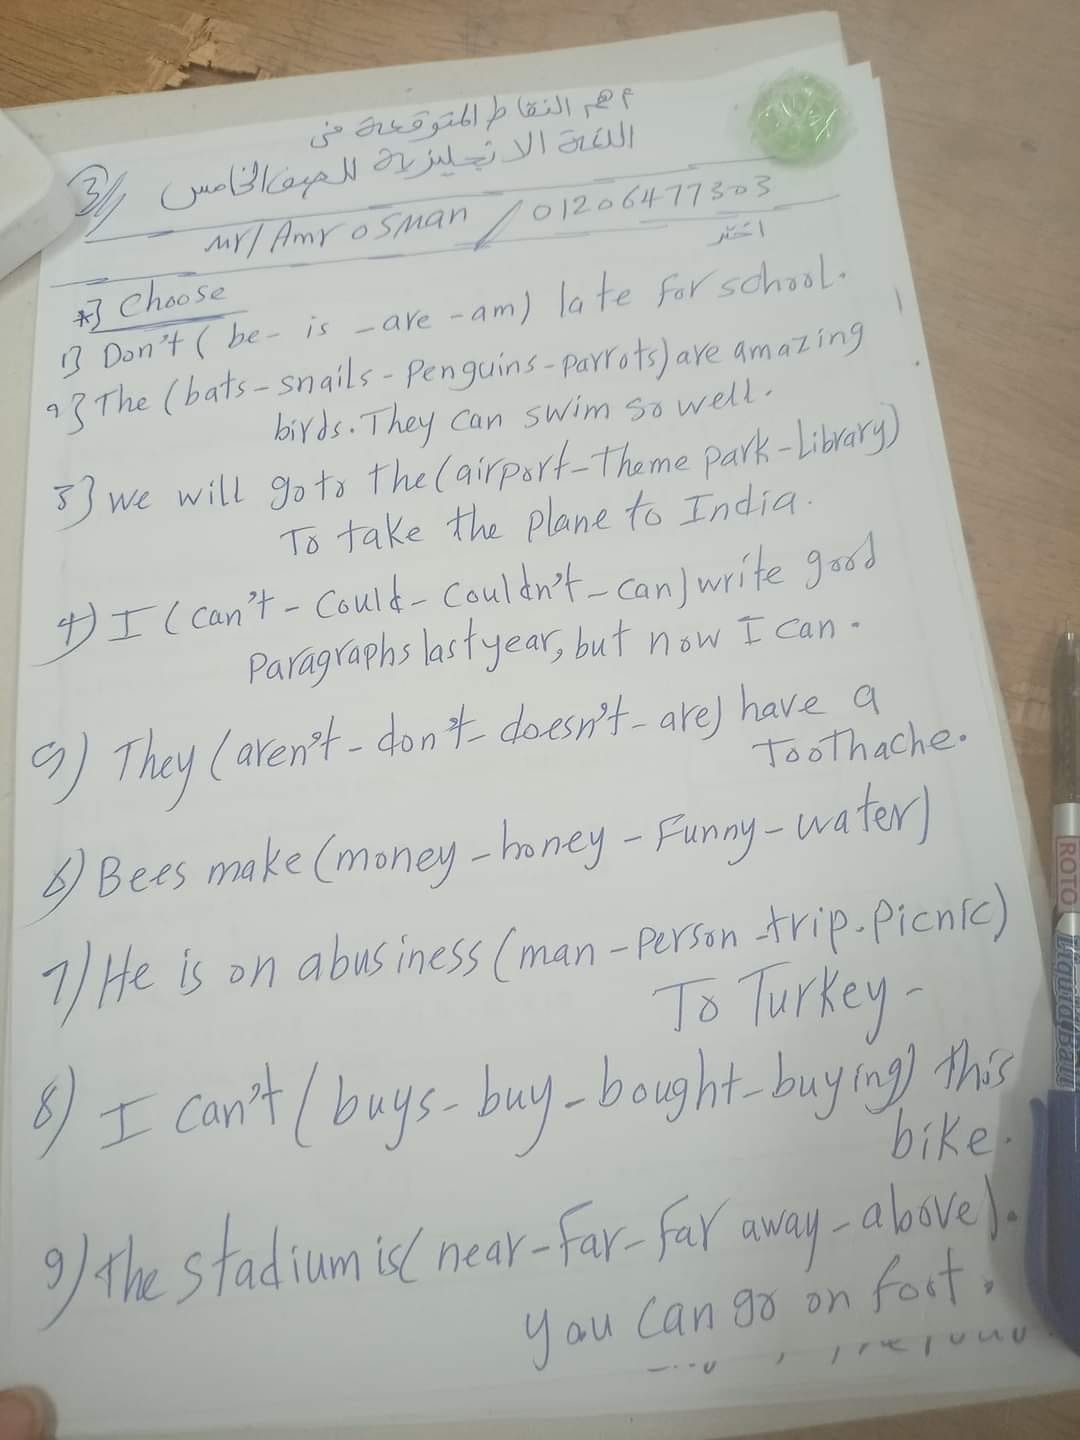 أهم النقاط المتوقعة فى
اللغة الانجليزية للصف الخامس
3
Mr/ Amr osman / 01206477303
اختر
*] Choose
1] Don't ( be - is - are - am) late for school.
2] The (bats - snails - Penguins - parrots) are amazing
birds. They can swim so well.
3] We will go to the (airport - Theme park - Library)
To take the plane to India.
4) I (can't - Could - Couldn't - can) write good
Paragraphs last year, but now I can.
5) They (aren't - don't - doesn't - are) have a
Toothache.
6) Bees make (money - honey - Funny - water)
7) He is on a business (man - Person - trip. Picnic)
To Turkey -
8) I can't ( buys - buy - bought - buying) this
bike.
9) The stadium is( near - far - far away - above).
you can go on foot.
ROTO
Liquid Ball